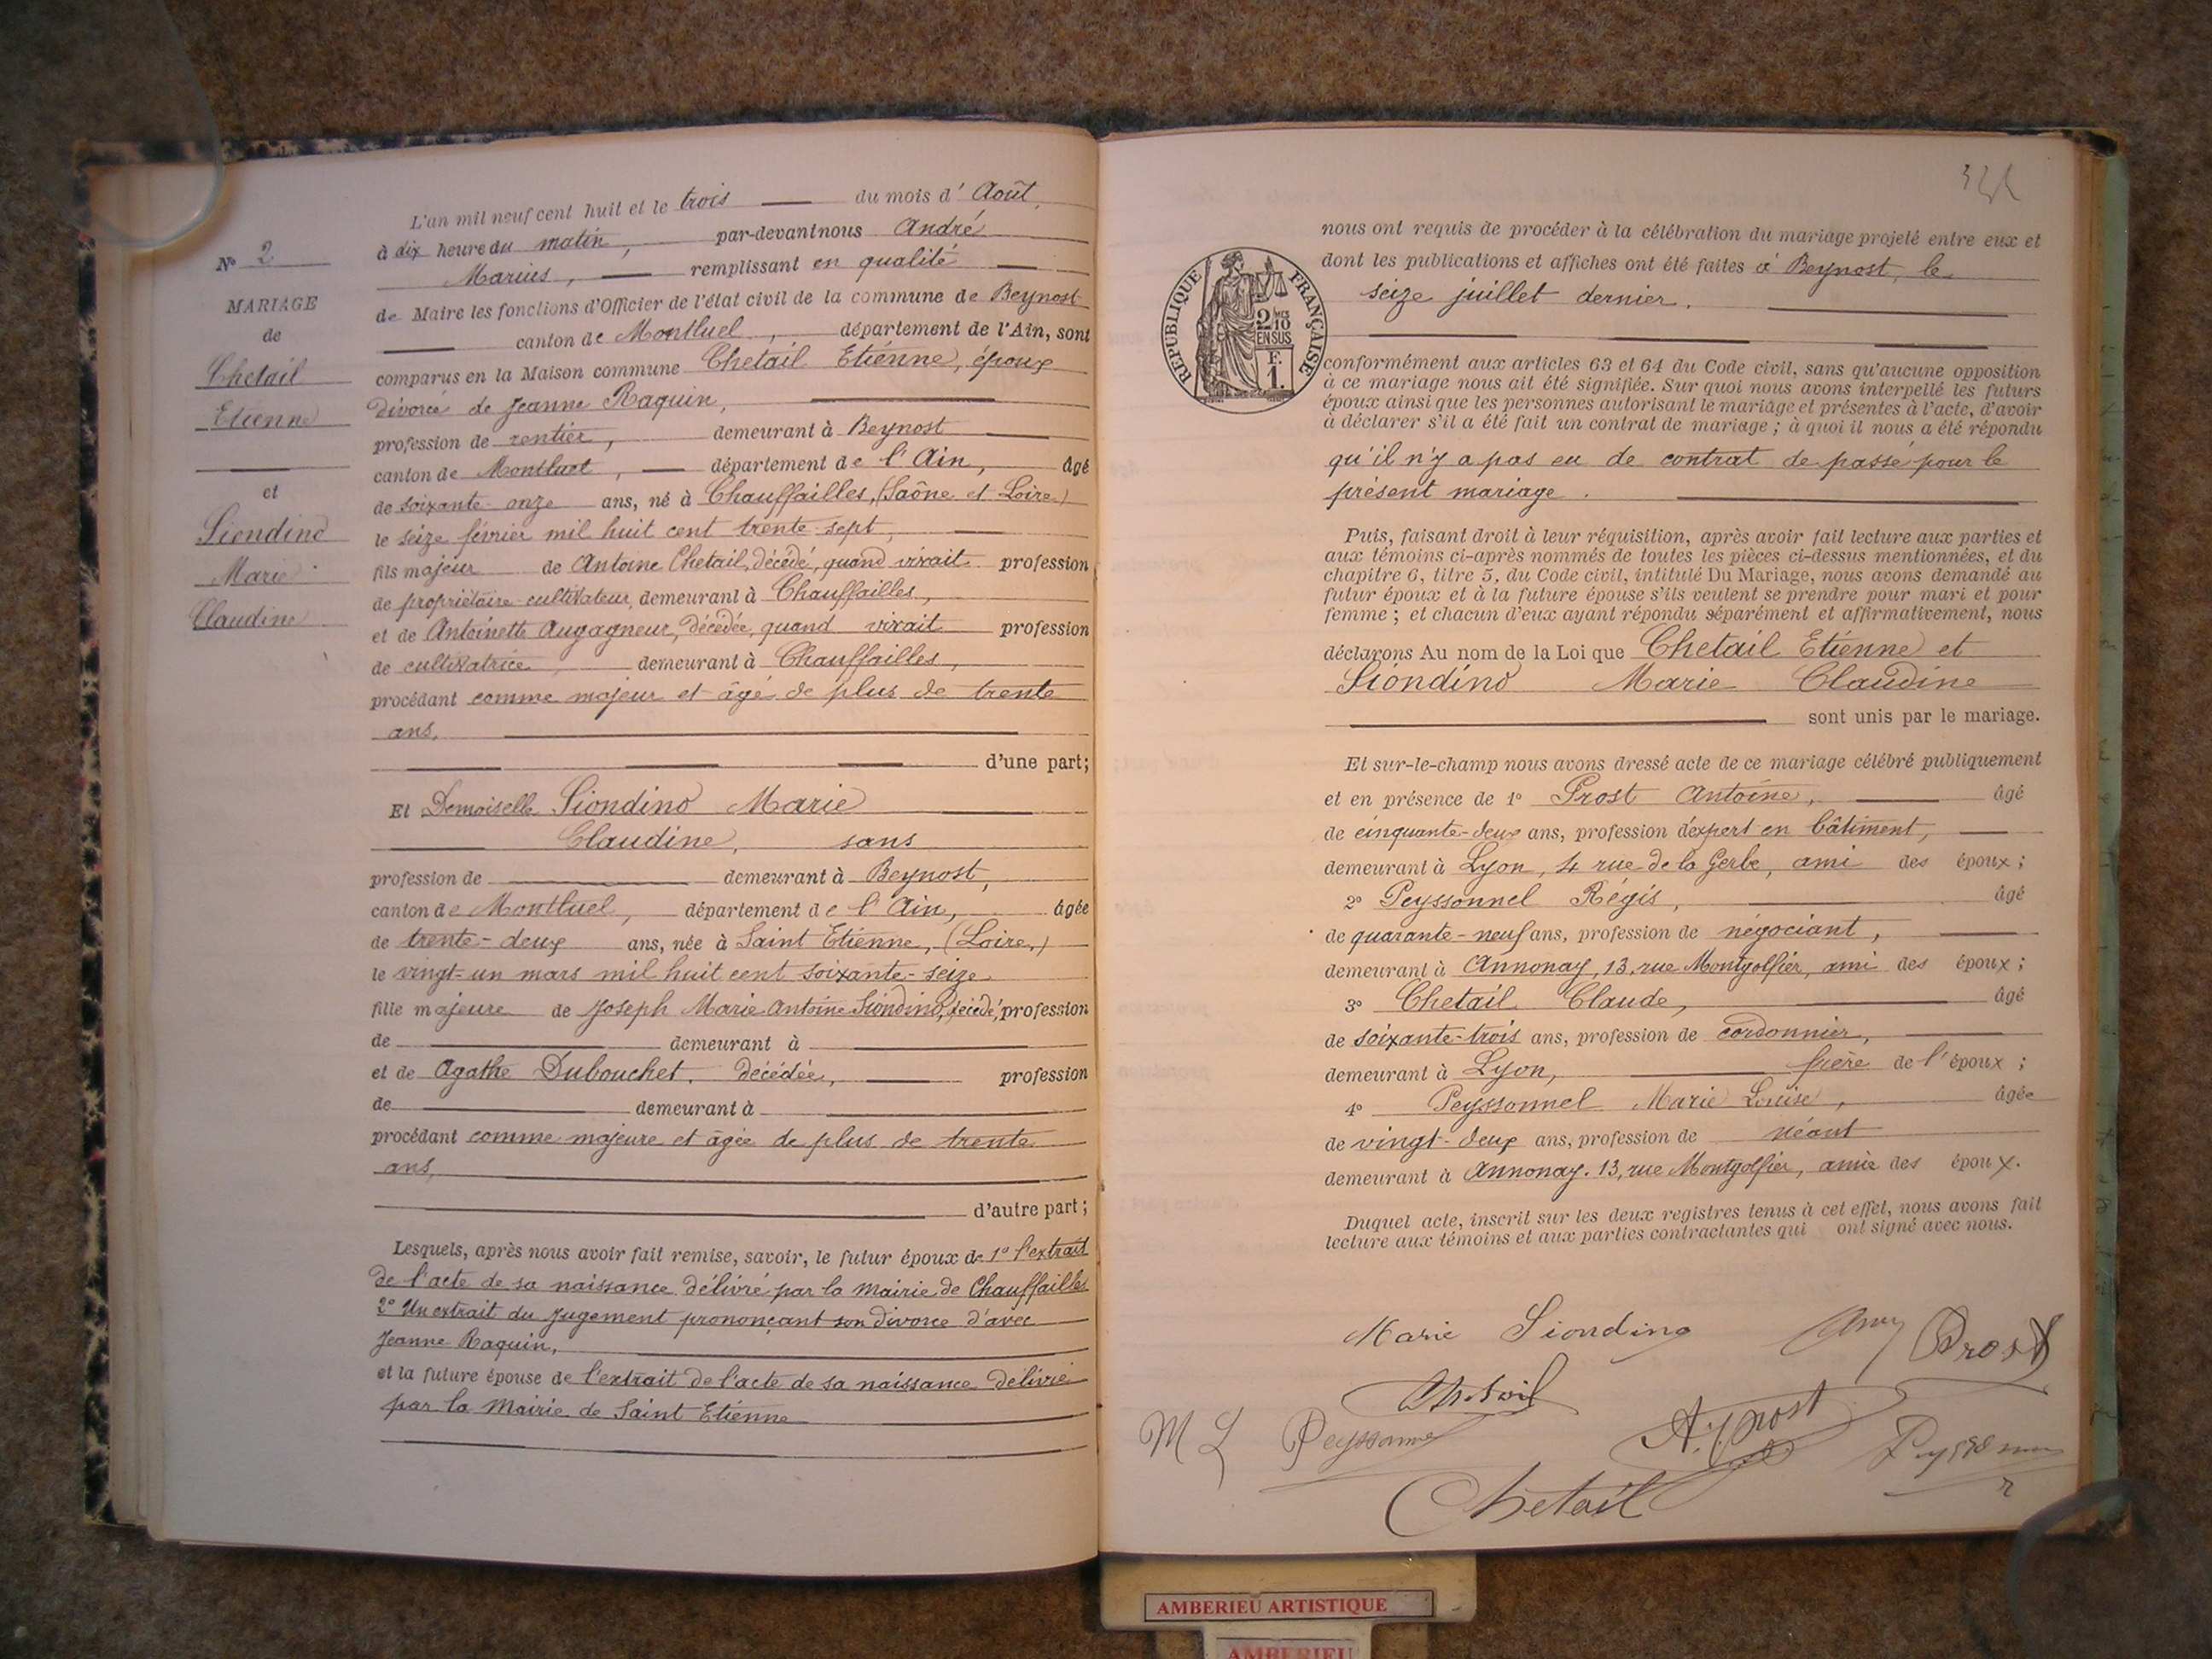 N° 2
MARIAGE
de
Chetail
Etienne
et
Siondino
Marie
Claudine
L'an mil neuf cent huit et le trois du mois d' Août,
à dix heure du matin, par-devant nous André
Marius, remplissant en qualité
de Maire les fonctions d'Officier de l'état civil de la commune de Beynost
canton de Montluel, département de l'Ain, sont
comparus en la Maison commune Chetail Etienne, époux
divorcé de Jeanne Raquin,
profession de rentier, demeurant à Beynost
canton de Montluel, département de l'Ain, âgé
de soixante-onze ans, né à Chauffailles, (Saône et Loire)
le seize février mil huit cent trente-sept,
fils majeur de Antoine Chetail, décédé, quand vivait profession
de propriétaire-cultivateur, demeurant à Chauffailles,
et de Antoinette Augagneur, décédée, quand vivait profession
de cultivatrice, demeurant à Chauffailles,
procédant comme majeur et âgé de plus de trente
ans,
d'une part;
Et Demoiselle Siondino Marie
Claudine, sans
profession de demeurant à Beynost,
canton de Montluel, département de l'Ain, âgée
de trente-deux ans, née à Saint Etienne, (Loire,)
le vingt-un mars mil huit cent soixante-seize
fille majeure de Joseph Marie Antoine Siondino, décédé, profession
de demeurant à
et de Agathe Dubouchet, décédée, profession
de demeurant à
procédant comme majeure et âgée de plus de trente
ans,
d'autre part;
Lesquels, après nous avoir fait remise, savoir, le futur époux de 1° l'extrait
de l'acte de sa naissance délivré par la Mairie de Chauffailles
2° Un extrait du Jugement prononçant son divorce d'avec
Jeanne Raquin,
et la future épouse de l'extrait de l'acte de sa naissance délivré
par la Mairie de Saint Etienne
nous ont requis de procéder à la célébration du mariage projeté entre eux et
dont les publications et affiches ont été faites à Beynost, le
seize juillet dernier.
REPUBLIQUE FRANÇAISE
2/10MES
EN SUS
F.
1.
conformément aux articles 63 et 64 du Code civil, sans qu'aucune opposition
à ce mariage nous ait été signifiée. Sur quoi nous avons interpellé les futurs
époux ainsi que les personnes autorisant le mariage et présentes à l'acte, d'avoir
à déclarer s'il a été fait un contrat de mariage; à quoi il nous a été répondu
qu'il n'y a pas eu de contrat de passé pour le
présent mariage.
Puis, faisant droit à leur réquisition, après avoir fait lecture aux parties et
aux témoins ci-après nommés de toutes les pièces ci-dessus mentionnées, et du
chapitre 6, titre 5, du Code civil, intitulé Du Mariage, nous avons demandé au
futur époux et à la future épouse s'ils veulent se prendre pour mari et pour
femme; et chacun d'eux ayant répondu séparément et affirmativement, nous
déclarons Au nom de la Loi que Chetail Etienne et
Siondino Marie Claudine
sont unis par le mariage.
Et sur-le-champ nous avons dressé acte de ce mariage célébré publiquement
et en présence de 1° Prost Antoine, âgé
de cinquante-deux ans, profession d'expert en bâtiment,
demeurant à Lyon, 4 rue de la Gerbe, ami des époux;
2° Peyssonnel Régis, âgé
de quarante-neuf ans, profession de négociant,
demeurant à Annonay, 13, rue Montgolfier, ami des époux;
3° Chetail Claude, âgé
de soixante-trois ans, profession de cordonnier,
demeurant à Lyon, frère de l'époux;
4° Peyssonnel Marie Louise, âgée
de vingt-deux ans, profession de néant
demeurant à Annonay. 13, rue Montgolfier, amie des époux.
Duquel acte, inscrit sur les deux registres tenus à cet effet, nous avons fait
lecture aux témoins et aux parties contractantes qui ont signé avec nous.
Marie Siondino Prost
M L Peyssonnel A. Prost
Chetail
AMBERIEU ARTISTIQUE
AMBERIEU